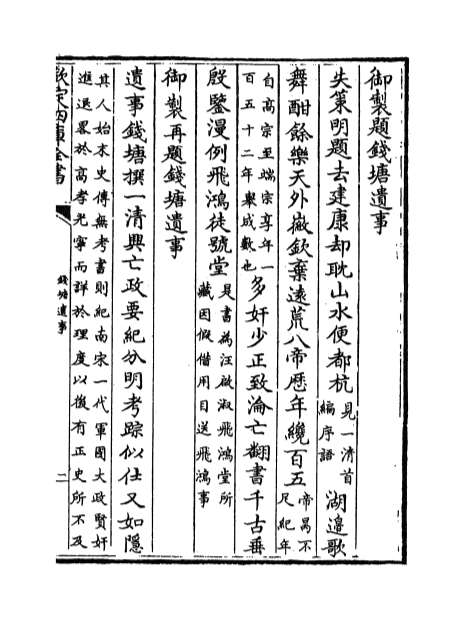 御製題錢塘遺事
失策明題去建康却耽山水便都杭見一清首編序語湖邉歌
舞酣餘樂天外徽欽棄逺荒八帝歴年纔百五帝昺不足紀年
自髙宗至端宗享年一百五十二年舉成數也多奸少正致淪亡翻書千古垂
殷鑒漫例飛鴻徒號堂是書為汪啟淑飛鴻堂所藏因假借用目送飛鴻事
御製再題錢塘遺事
遺事錢塘撰一清興亡政要紀分明考踪似仕又如隱
其人始末史傳無考書則紀南宋一代軍國大政賢奸
進退畧於髙孝光寧而詳於理度以後有正史所不及
欽定四庫全書
錢塘遺事
二